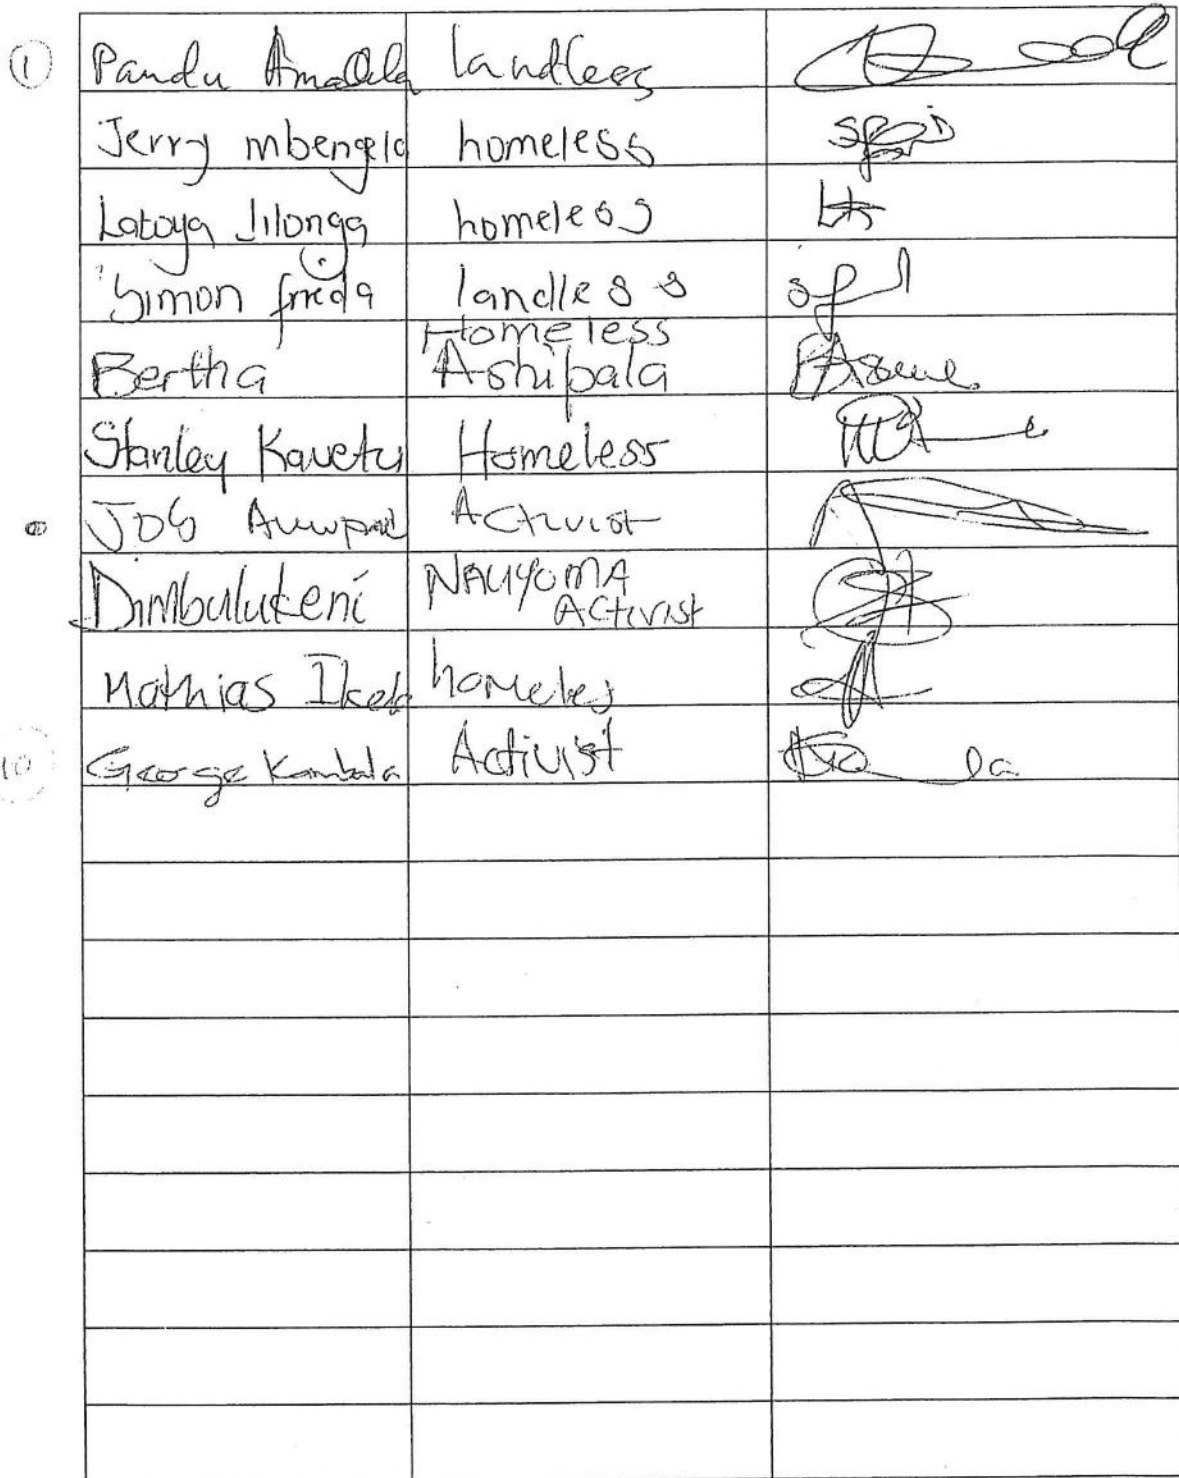 1 Pandu landless
Jerry mbengela homeless
Latoya Jilonga homeless
Simon frieda landless
Homeless
Bertha Ashipala
Stanley Kavetu Homeless
Job Activist
Dimbulukeni NAUYOMA
ACtivist
Mathias homeles
10 George Kambala Activist